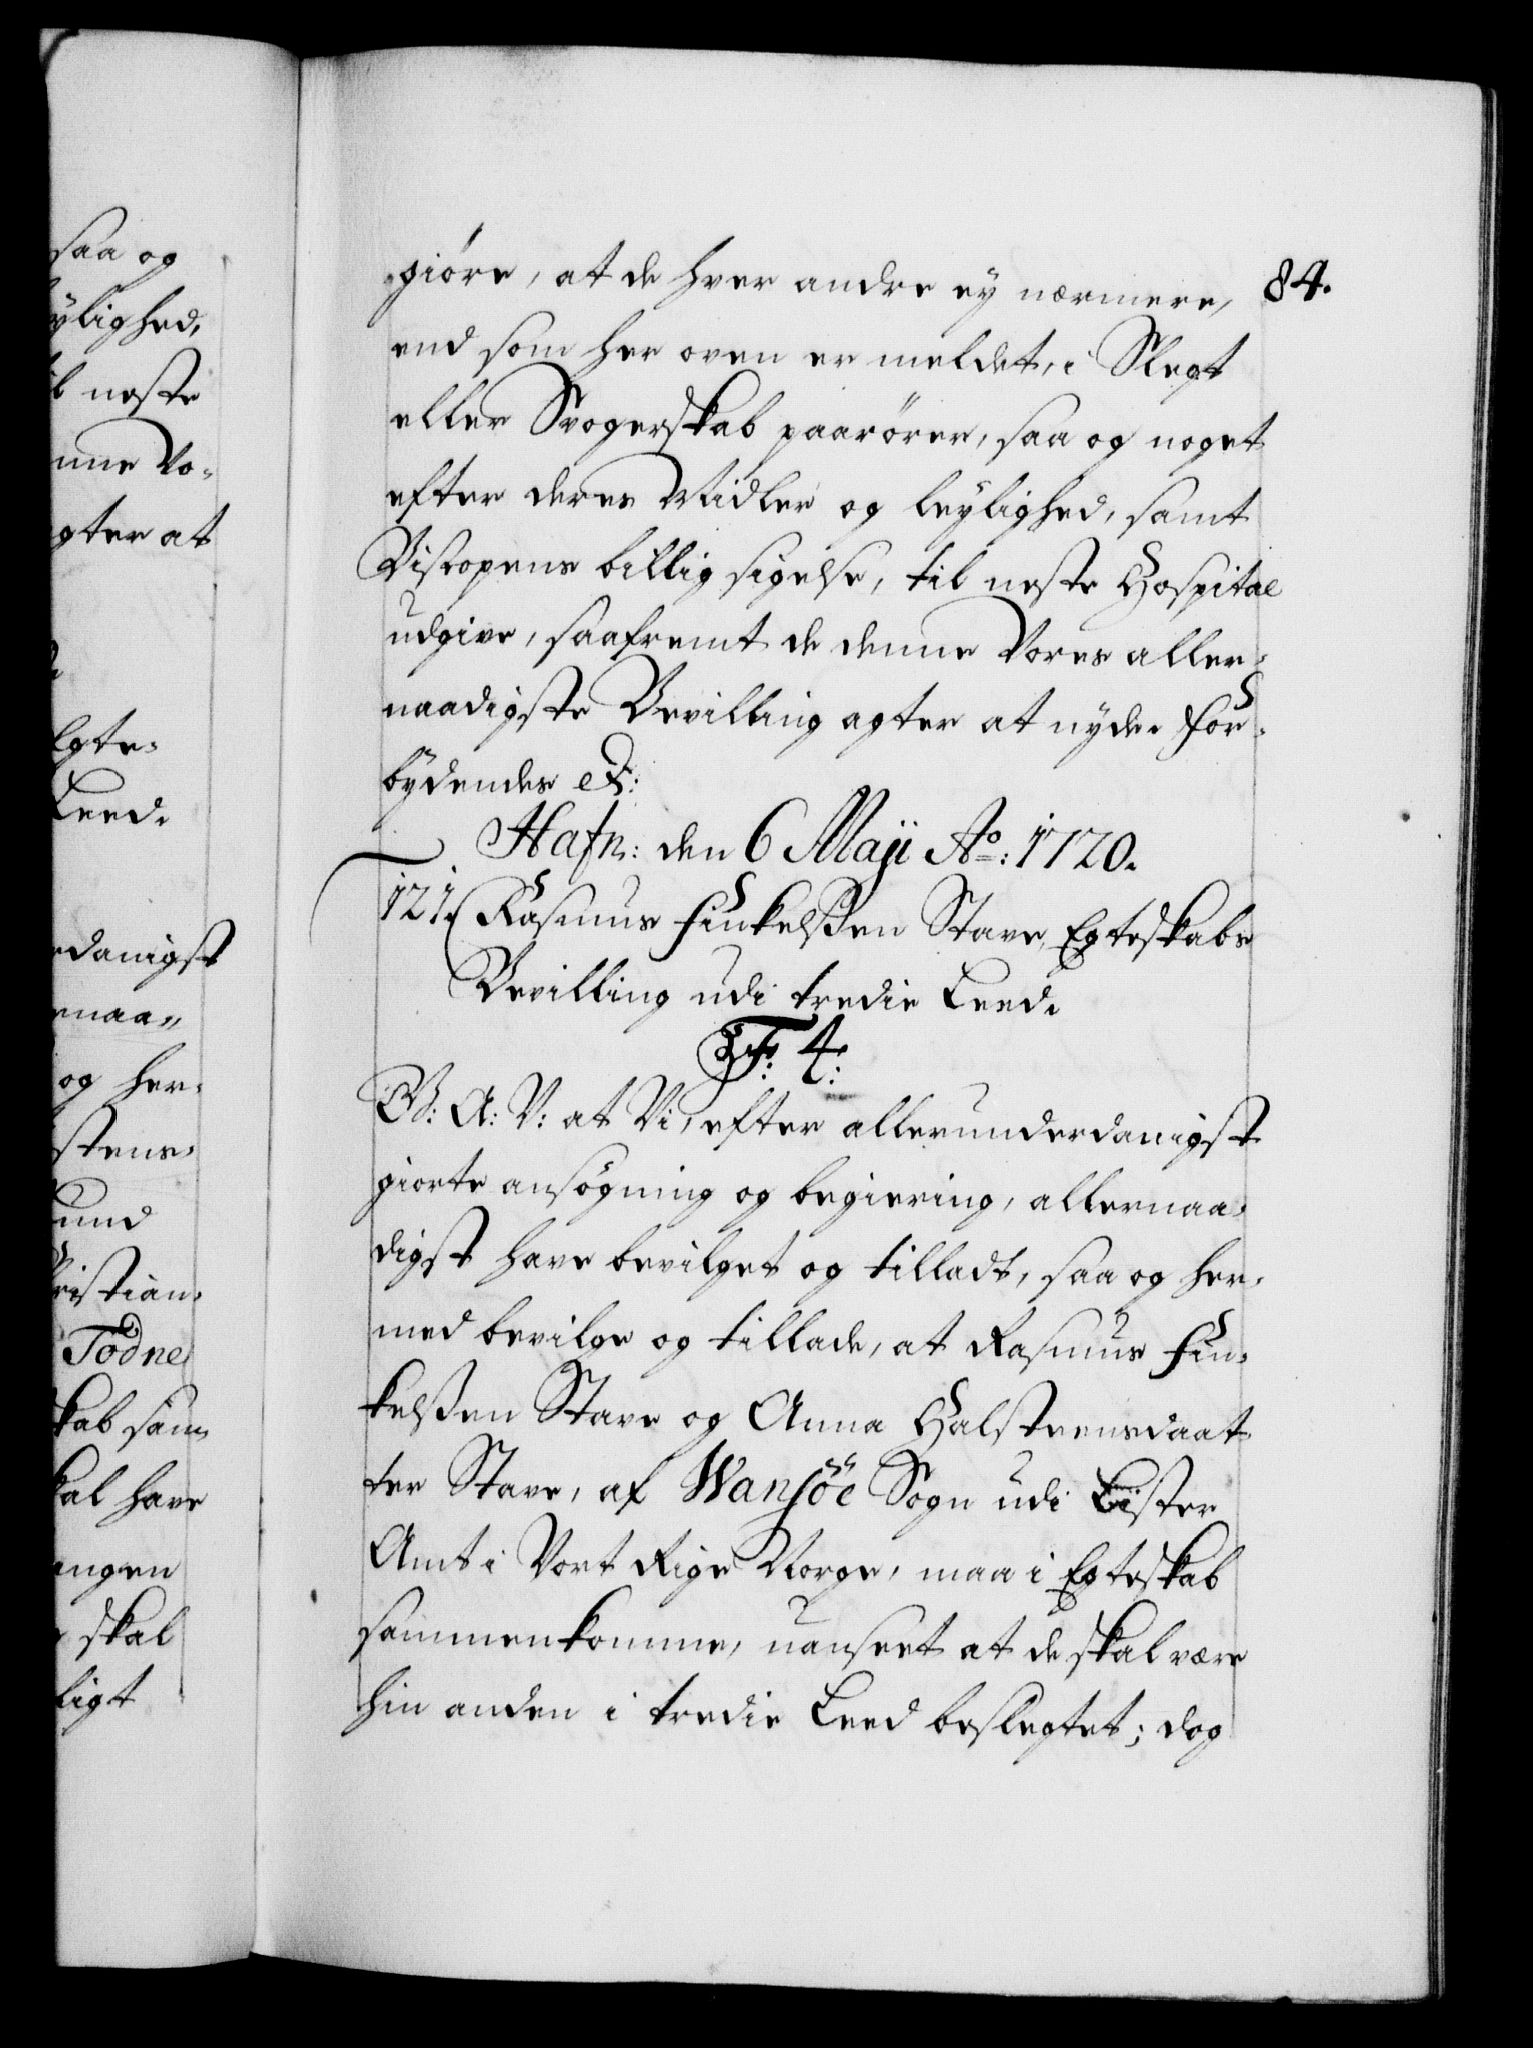 saa og
ylighed,
il neste
nne Vo-
gter at
lgte-
Leed.
rdanigst
rnaa-
og her-
stens-
und
ristian-
Todne
skab sam-
kal have
ingen
skal
ligt
84.
giöre, at de hver andre ey nærmere,
end som her oven er meldet, i Slegt
eller Svogerskab paarörer, saa og noget
efter deres Midler og leylighed, samt
Bispens billig sigelse, til neste Hospital
udgive, saafremt de denne Vores aller-
naadigste Bevilling agter at nyde. For-
bydendes etc:
Hafn: den 6 Maji Ao: 1720.
121. Rasmus Finkelßen Stave, Egteskabs
Bevilling udi tredie Leed.
F: 4:
G: A: V: at Vi, efter allerunderdanigst
giorte ansögning og begiering, allernaa-
digst have bevilget og tilladt, saa og her-
med bevilge og tillade, at Rasmus Fin-
kelßen Stave og Anna Halsteensdaat-
ter Stave, af Wansöe Sogn udi Lister
Amt i Vort Rige Norge, maa i Egteskab
sammenkomme, uanseet at de skal være
hin anden i tredie Leed beslegtet; dog